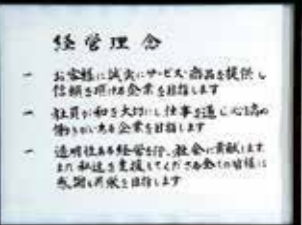 経営理念
一 お客様に誠実にサービス・商品を提供し
信頼を頂ける企業を目指します
一 社員が和を大切にし仕事を通じ心を高め
働きがいある企業を目指します
一 透明性ある経営を行い、社会に貢献します
また私達を支援してくださる全ての皆様に
感謝し共栄を目指します